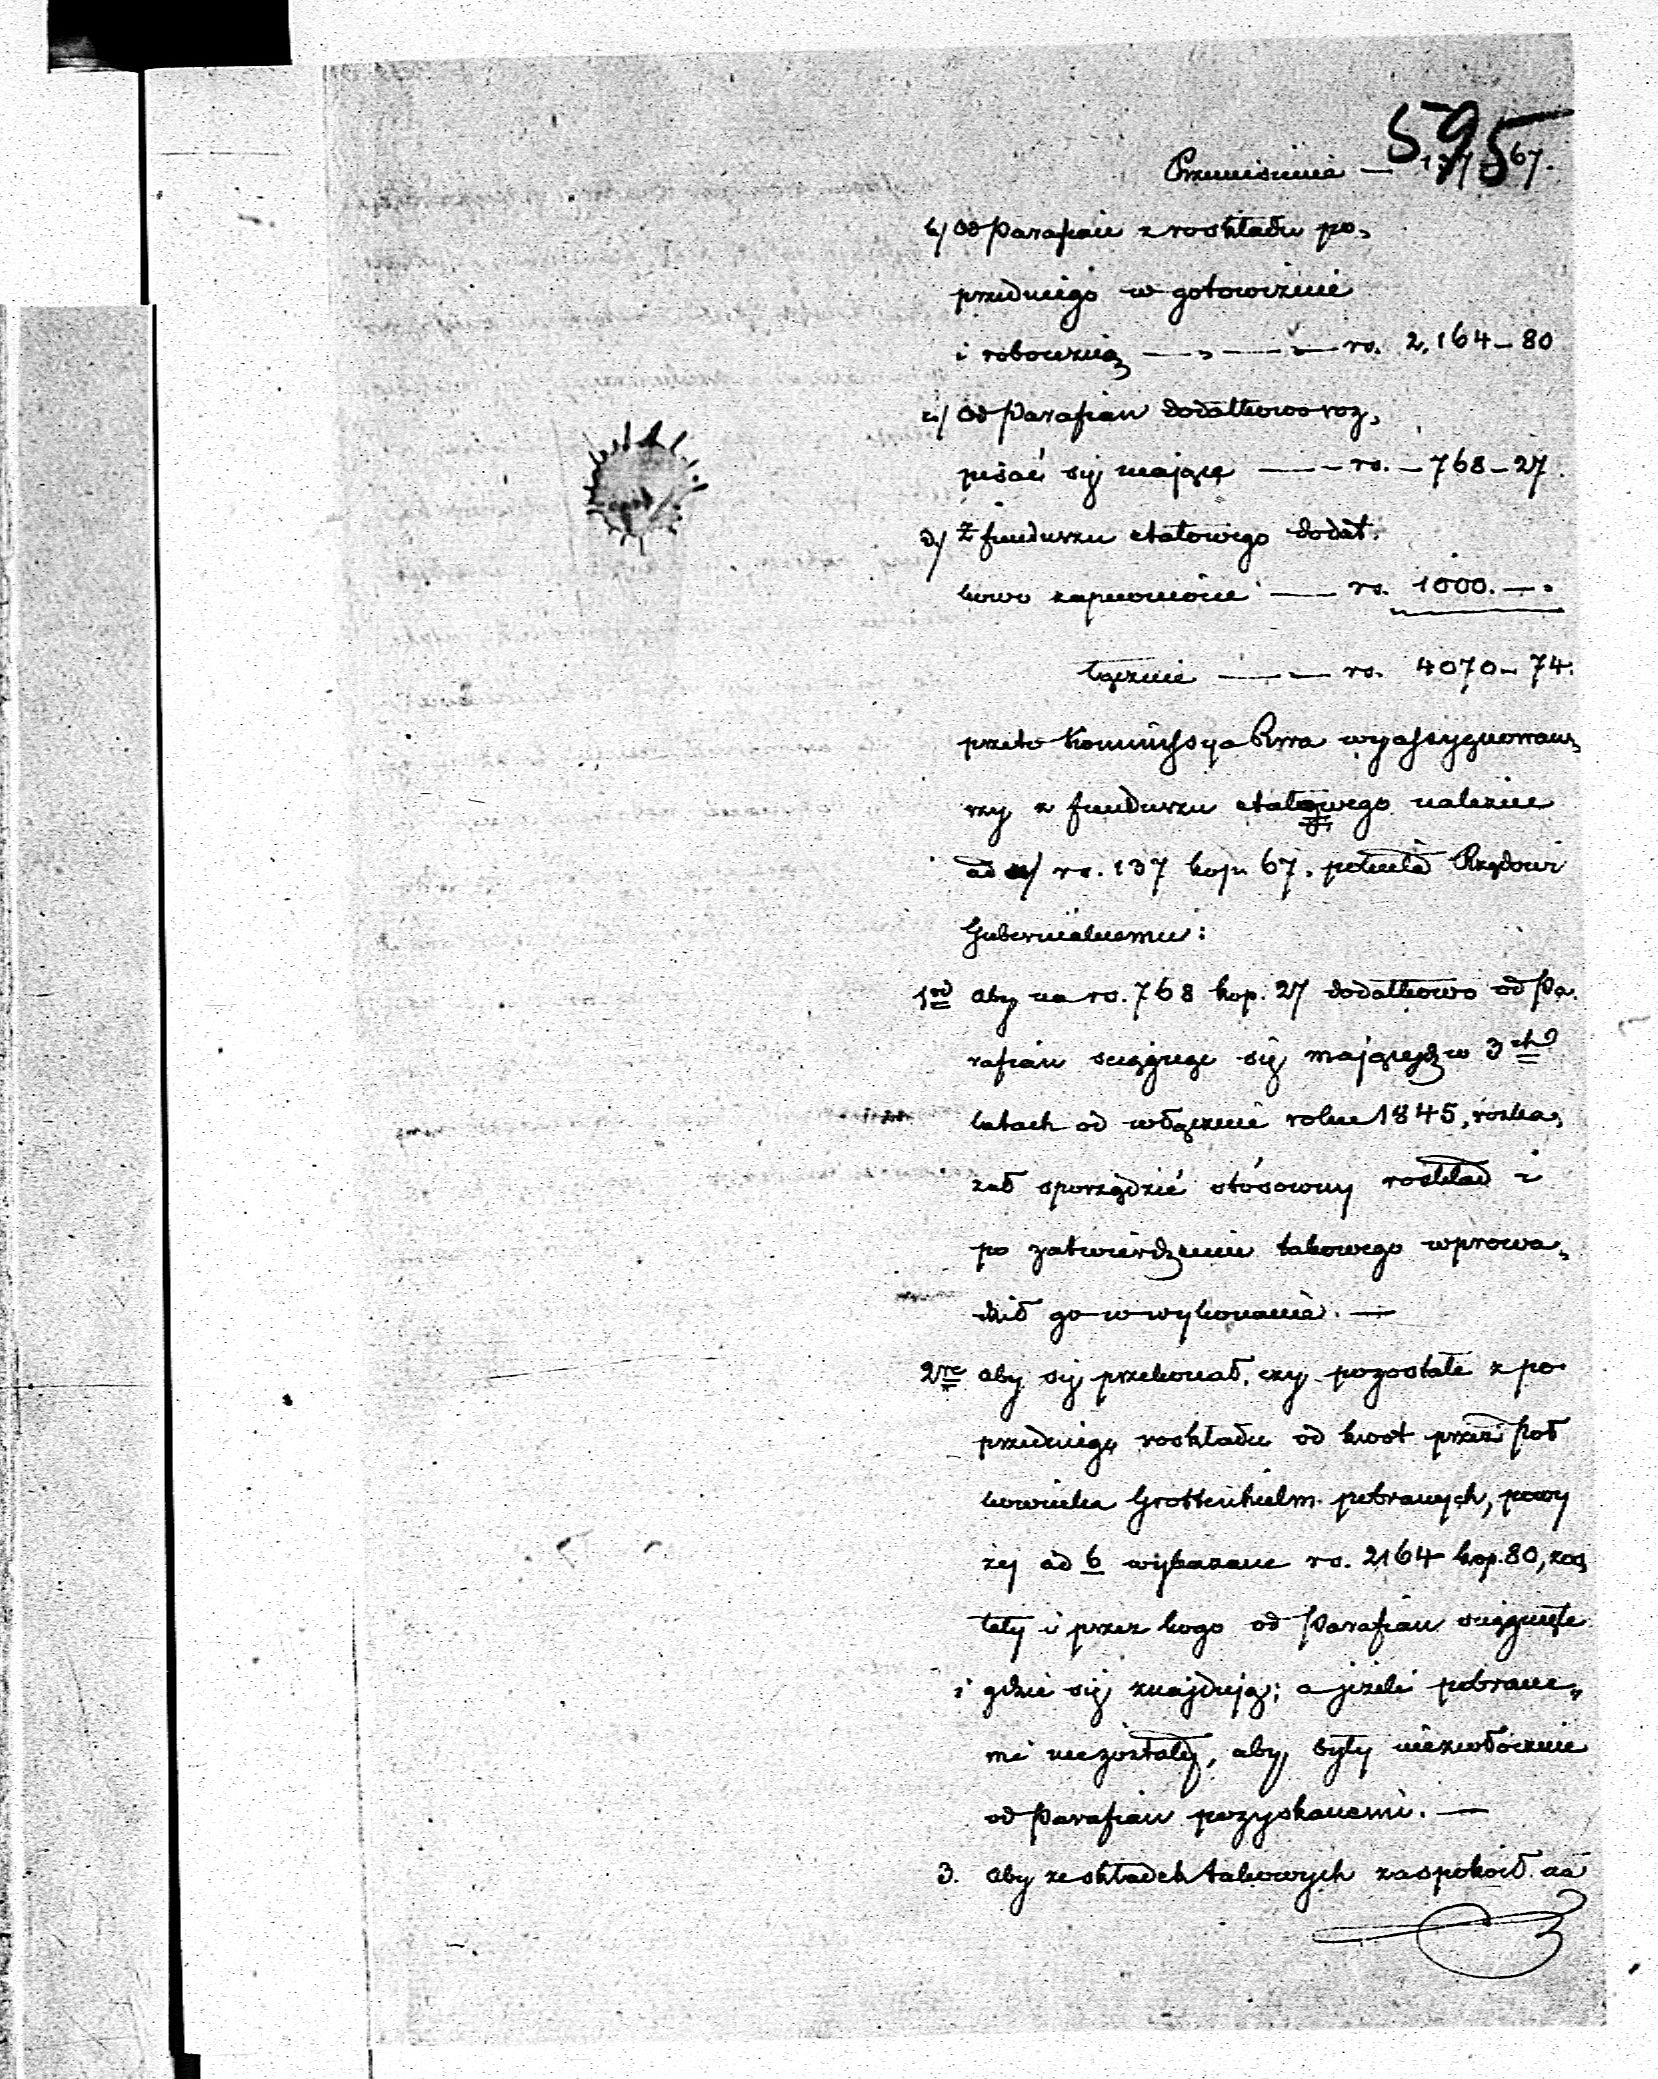 595
Przeniesienie — 137 - 67.
b/ Od Parafian z roskładu po„
przedniego w gotowiznie
i robocizną — „ — „ — rs. 2,164 – 80
c/ Od Parafian dodatkowo roz„
pisać się mające — — rs. – 768 – 27.
d/ Z funduszu etatowego dodat„
kowo zapewnione — rs. 1000. — „
łącznie — — rs. 4070 – 74.
przeto Kommissya Rwa wyassygnowaw„
szy z funduszu etatowego należne
ad a/ rs. 137 kop. 67. poleciła Rządowi
Gubernialnemu:
1od Aby na rs. 768 kop. 27 dodatkowo od Pa„
rafian sciągnąc się mających w 3ch
latach od włącznie roku 1845, roska„
zał sporządzić stósowny roskład i
po zatwierdzeniu takowego wprowa„
dził go w wykonanie. —
2re aby się przekonał, czy pozostałe z po„
przedniego roskładu od kwot przez Poł
kownika Grottenhielm pobranych, powy
żej ad b wykazane rs. 2164 kop. 80, zos„
tały i przez kogo od Parafian sciągnięte
i gdzie się znajdują; a jeżeli pobrane„
mi nie zostały, aby były niezwłócznie
od Parafian pozyskanemi. —
3. Aby ze składek takowych zaspokoił na